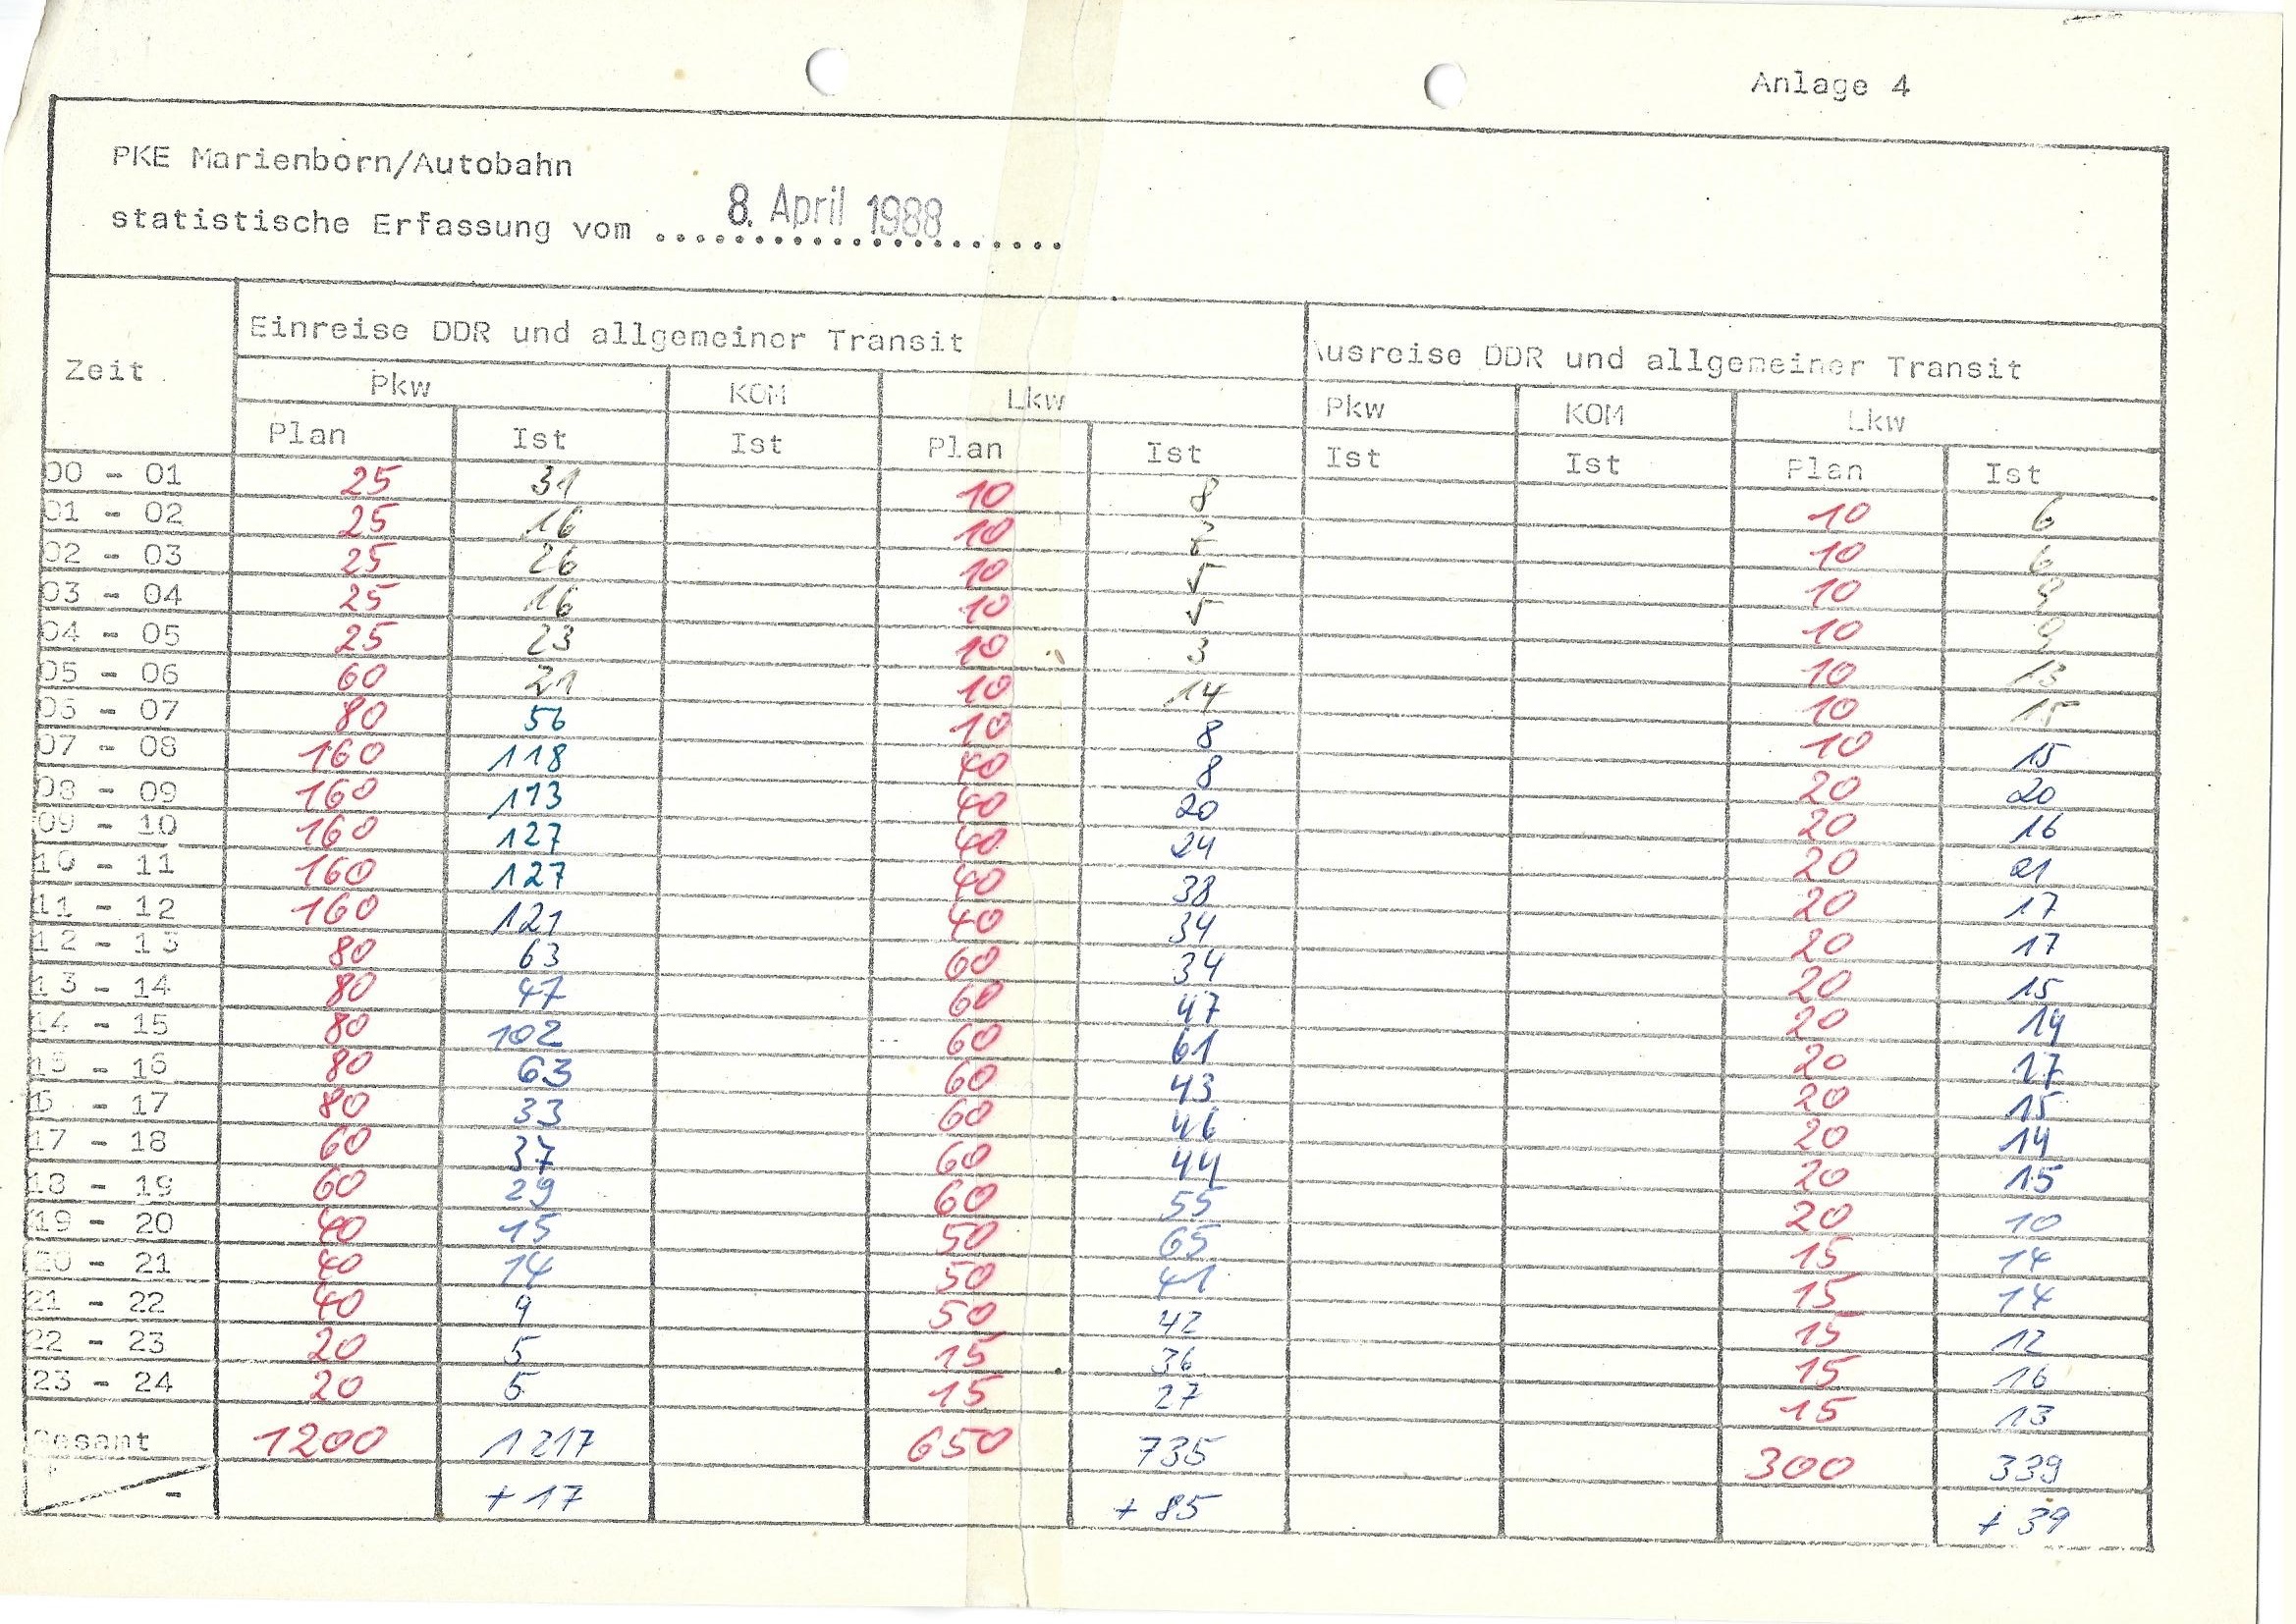 Anlage 4
PKE Marienborn/Autobahn
statistische Erfassung vom 8. April 1988
Zeit Einreise DDR und allgemeiner Transit Ausreise DDR und allgemeiner Transit
Pkw KOM Lkw Pkw KOM Lkw
Plan Ist Ist Plan Ist Ist Ist Plan Ist
00 - 01 25 31 10 8 10 6
01 - 02 25 16 10 10 6
02 - 03 25 26 10 5 10
03 - 04 25 16 10 5 10
04 - 05 25 23 10 3 10 13
05 - 06 60 21 10 14 10 15
06 - 07 80 56 10 8 10 15
07 - 08 160 118 40 8 20 20
08 - 09 160 113 40 20 20 16
09 - 10 160 127 40 24 20 21
10 - 11 160 127 40 38 20 17
11 - 12 160 121 40 34 20 17
12 - 13 80 63 60 34 20 15
13 - 14 80 47 60 47 20 14
14 - 15 80 102 60 61 20 17
15 - 16 80 63 60 43 20 15
6 - 17 80 33 60 46 20 14
17 - 18 60 37 60 44 20 15
18 - 19 60 29 60 55 20 10
19 - 20 40 15 50 65 15 14
20 - 21 40 14 50 41 15 14
21 - 22 40 9 50 42 15 12
22 - 23 20 5 15 36 15 16
23 - 24 20 5 15 27 15 13
Gesamt 1200 1217 650 735 300 339
+ - + 17 + 85 + 39